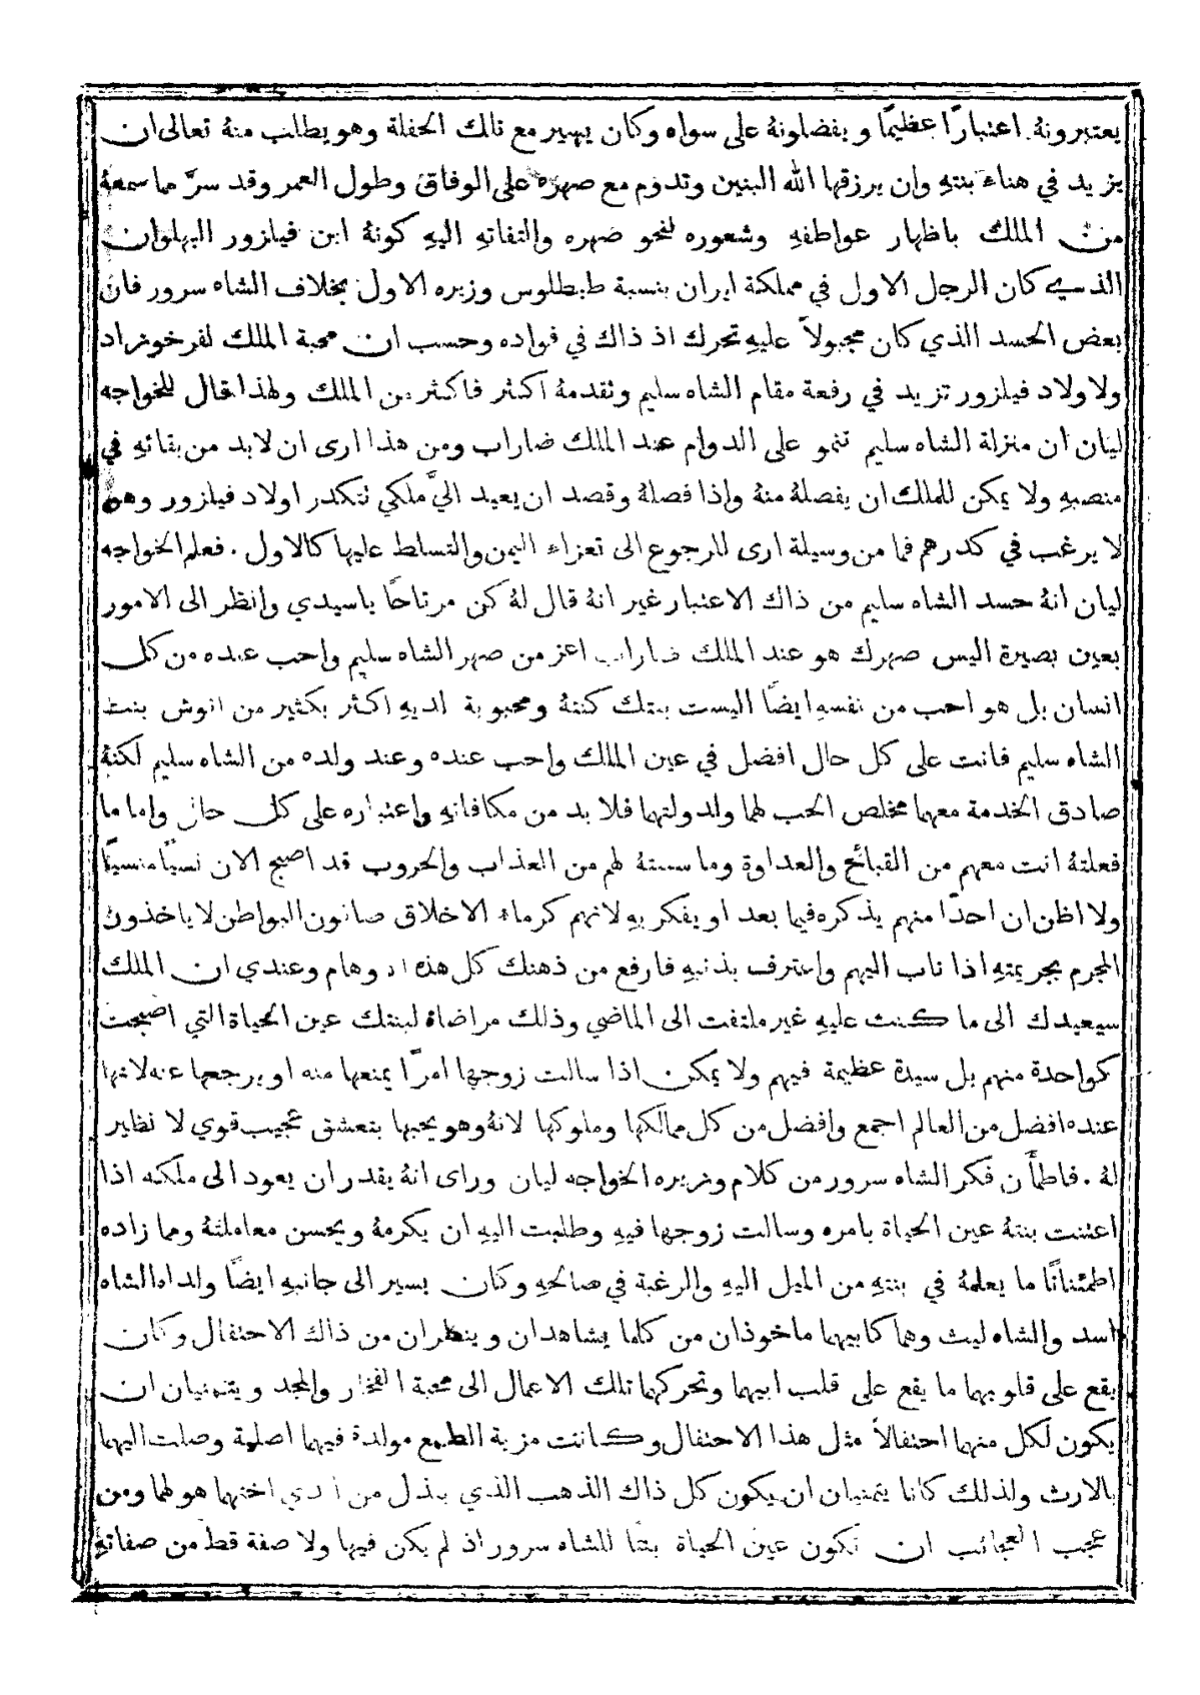 يعتبرونهُ اعتبارًا عظيمًا ويفضلونهُ على سواه وكان يسير مع تلك الحفلة وهو يطلب منهُ تعالى ان
يزيد في هناء بنتهِ وان يرزقها الله البنين وتدوم مع صهره على الوفاق وطول العمر وقد سرَّ مما سمعهُ
من الملك باظهار عواطفهِ وشعوره نحو صهره والتفاتهِ اليهِ كونهُ ابن فيلزور البهلوان
الذي كان الرجل الاول في مملكة ايران بنسبة طيطلوس وزيره الاول بخلاف الشاه سرور فان
بعض الحسد الذي كان مجبولاً عليهِ تحرك اذ ذاك في فواده وحسب ان محبة الملك لفرخوزاد
ولاولاد فيلزور تزيد في رفعة مقام الشاه سليم وتقدمهُ اكثر فاكثر من الملك ولهذا قال للخواجه
ليان ان منزلة الشاه سليم تنمو على الدوام عند الملك ضاراب ومن هذا ارى ان لابد من بقائهِ في
منصبهِ ولا يمكن للملك ان يفصلهُ منهُ واذا فصلهُ وقصد ان يعيد اليَّ ملكي تتكدر اولاد فيلزور وهو
لا يرغب في كدرهم فما من وسيلة ارى للرجوع الى تعزاء اليمن والتسلط عليها كالاول . فعلم الخواجه
ليان انهُ حسد الشاه سليم من ذاك الاعتبار غير انهُ قال لهُ كن مرتاحًا ياسيدي وانظر الى الامور
بعين بصيرة اليس صهرك هو عند الملك ضاراب اعز من صهر الشاه سليم واحب عنده من كل
انسان بل هو احب من نفسهِ ايضًا اليست بنتك كنتهُ ومحبوبة لديهِ اكثر بكثير من انوش بنت
الشاه سليم فانت على كل حال افضل في عين الملك واحب عنده وعند ولده من الشاه سليم لكنهُ
صادق الخدمة معهما مخلص الحب لهما ولدولتهما فلا بد من مكافاتهِ واعتباره على كل حال واما ما
فعلتهُ انت معهم من القبائح والعداوة وما سببتهُ لهم من العذاب والحروب قد اصبح الان نسيًا منسيًا
ولا اظن ان احدًا منهم يذكره فيما بعد او يفكر بهِ لانهم كرماء الاخلاق صانون البواطن لا ياخذون
المجرم بجريمتهِ اذا تاب اليهم واعترف بذنبهِ فارفع من ذهنك كل هذه الاوهام وعندي ان الملك
سيعيدك الى ما كنت عليهِ غير ملتفت الى الماضي وذلك مراضاة لبنتك عين الحياة التي اصبحت
كواحدة منهم بل سيدة عظيمة فيهم ولا يمكن اذا سالت زوجها امرًا يمنعها منه او يرجعها عنه لانها
عنده افضل من العالم اجمع وافضل من كل ممالكها وملوكها لانهُ وهو يحبها بتعشق عجيب قوي لا نظير
لهُ . فاطمأن فكر الشاه سرور من كلام وزيره الخواجه ليان وراى انهُ يقدر ان يعود الى ملكه اذا
اعتنت بنتهُ عين الحياة بامره وسالت زوجها فيهِ وطلبت اليهِ ان يكرمهُ ويحسن معاملتهُ ومما زاده
اطمئنانًا ما يعلمهُ في بنتهِ من الميل اليهِ والرغبة في صالحهِ وكان يسير الى جانبهِ ايضًا ولداه الشاه
اسد والشاه ليث وهما كابيهما ماخوذان من كلما يشاهدان وينظران من ذاك الاحتفال وكان
يقع على قلوبهما ما يقع على قلب ابيهما وتحركهما تلك الاعمال الى محبة الفخار والمجد ويتمنيان ان
يكون لكل منهما احتفالاً مثل هذا الاحتفال وكانت مزية الطمع مولدة فيهما اصلية وصلت اليهما
بالارث ولذلك كانا يتمنيان ان يكون كل ذاك الذهب الذي يبذل من ايدي اختهما هو لهما ومن
عجيب العجائب ان تكون عين الحياة بنتًا للشاه سرور اذ لم يكن فيها ولا صفة قط من صفاتهِ